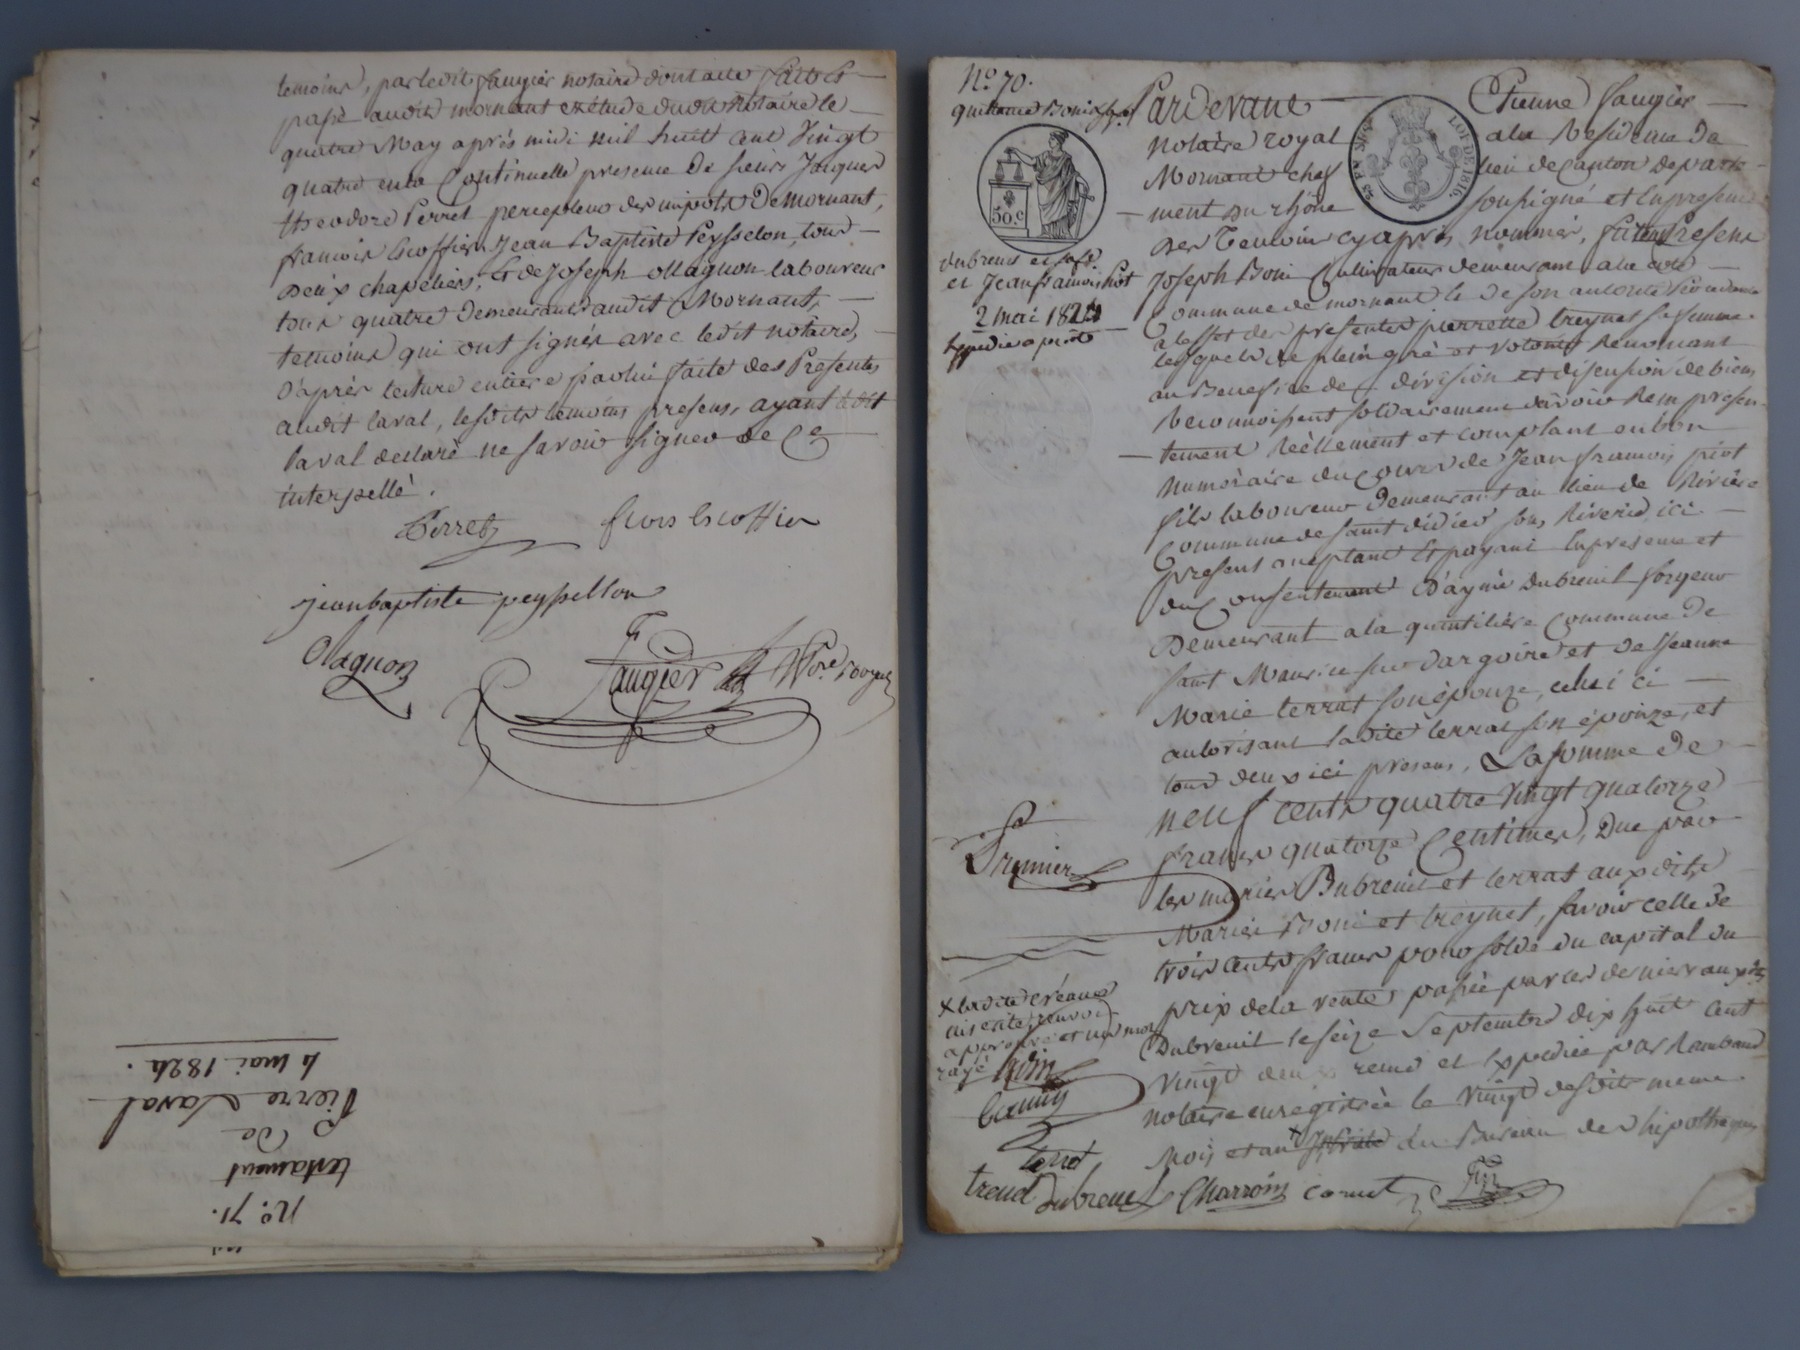 temoins, par ledit faugier notaire dont acte fait et
passé audit mornant en étude dudit notaire le
quatre May après midi mil huit cent vingt
quatre en la Continuelle presence de sieurs Jacques
theodore Perret percepteur des impots de Mornant,
francois Escoffier, Jean Baptiste Peysselon, tous
deux chapeliers, et de Joseph Ollagnon laboureur
tous quatre demeurants audit Mornant,
temoins qui ont signés avec ledit notaire,
d'après lecture entiere par lui faite des Presentes
audit laval, lesdits temoins presens, ayant ledit
laval declaré ne savoir signer de Ce
interpellé.
Perret
fcois Escoffier
jeanbaptiste peyssellon
Olagnon
faugier
Nore. royal
No. 71.
testament
De
Pierre Laval
4 mai 1824.
No. 70.
quittance Boni
50. C
dubreuil et
et Jean francois Piot
2 mai 1824
Expedié a piot
45 EN SUS
LOI DE 1816.
Pardevant Etienne faugier
notaire royal a la Residence de
Mornant chef lieu de Canton departe
ment du rhône soussigné et en presence
des temoins cy après nommés, furent Presens
Joseph Boni Cultivateur demeurant a la cote
Commune de mornant et de son autorité
a l'effet des presentes pierrette treynet sa femme
lesquels de plein gré et volonté Renonçant
au Benefice de division et discussion de biens
Reconnoissent solidairement davoir Recu presen
tement Réellement et comptant en bon
numéraire du Cours de Jean francois piot
fils laboureur demeurant au lieu de Rivière
Commune de saint didier sous Riverie, ici
present acceptant et payant en presence et
du Consentement D'aymé dubreuil forgeur
Demeurant a la quintilière Commune de
saint Maurice sur dargoire et de Jeanne
Marie terrat son épouze, celui ci
autorisant ladite terrat son épouze, et
tous deux ici presens, La somme de
neuf cents quatre vingt quatorze
francs quatorze Centimes, Due par
les mariés Dubreuil et terrat auxdits
Mariés Boni et treynet, savoir celle de
trois cents francs pour solde du capital du
prix de la vente passée par ces derniers auxdits
Dubreuil le seize Septembre dix huit cent
vingt deux recue et Expediée par Rambaud
notaire enregistrée le vingt desdits meme
mois et an x Inscrite au Bureau des hipotheques
Prunier
x ladite créance
inscrite, renvoi
approuvé et un mot
rayé
terrat
treud dubreuil Charroin cornut